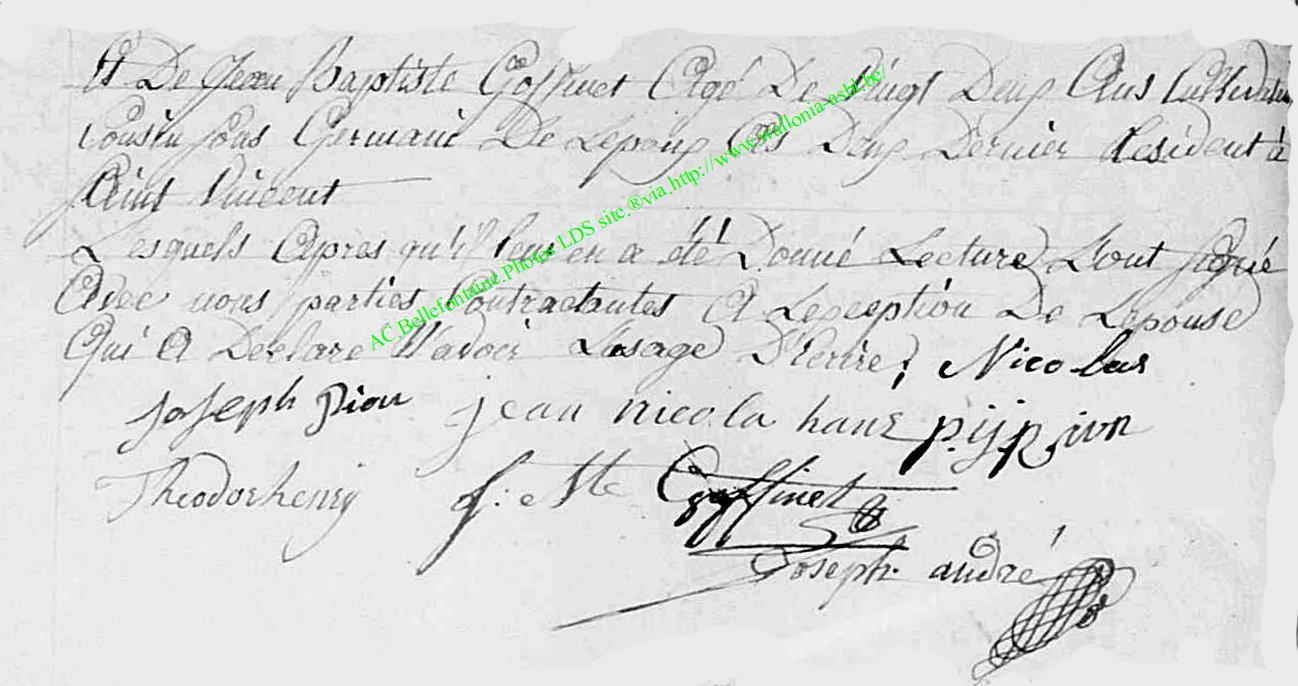 Et De Jean Baptiste Goffinet Agé De Vingt Deux Ans Cultivateur
Cousin sous Germain De Lepoux Ces Deux Dernier Résident à
Saint Vincent
Lesquels Apres qu'il leur en a été Donné Lecture, L'ont signé
Avec nous parties Contractantes A Lexception De Lepouse
Qui A Declare N'avoir Lusage D'Ecrire; Nicolas
joseph pion jean nicola hanz p:j:pion
Theodorhenry J: Bte Goffinet
Joseph andré
AC.Bellefontaine.Photos LDS site.®via.http://www.wallonia-asbl.be/